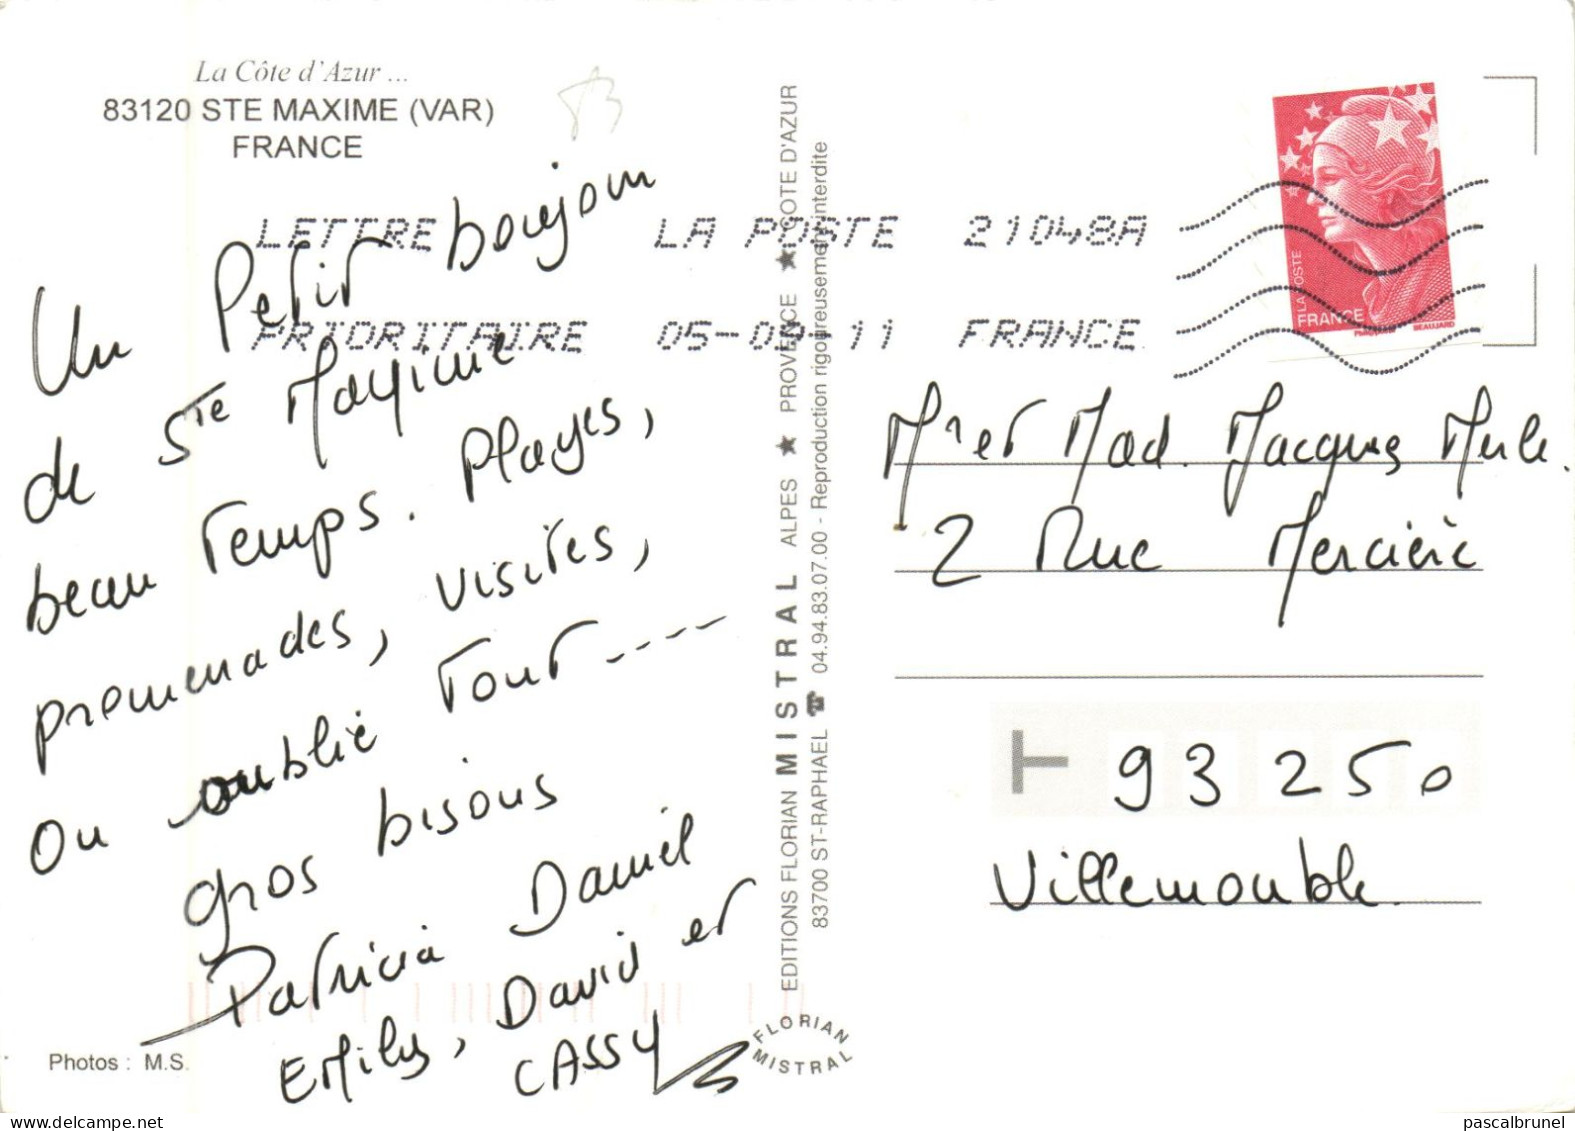 La Côte d'Azur ...
83120 STE MAXIME (VAR)
FRANCE
83
Un Petit bonjour
de Ste Maxime
beau temps. Plages,
promenades, visites,
on oublie tout ----
gros bisous
Patricia Daniel
Emily, David et
CASSY
Photos : M.S.
LETTRE LA POSTE 21048A
PRIORITAIRE 05-09-11 FRANCE
EDITIONS FLORIAN MISTRAL ALPES ★ PROVENCE ★ COTE D'AZUR
83700 ST-RAPHAEL ☎ 04.94.83.07.00 - Reproduction rigoureusement interdite
FLORIAN
MISTRAL
LA POSTE
FRANCE
BEAUJARD
Mr et Mad. Jacques Merle.
2 Rue Mercière
93250
Villemomble.
pascalbrunel